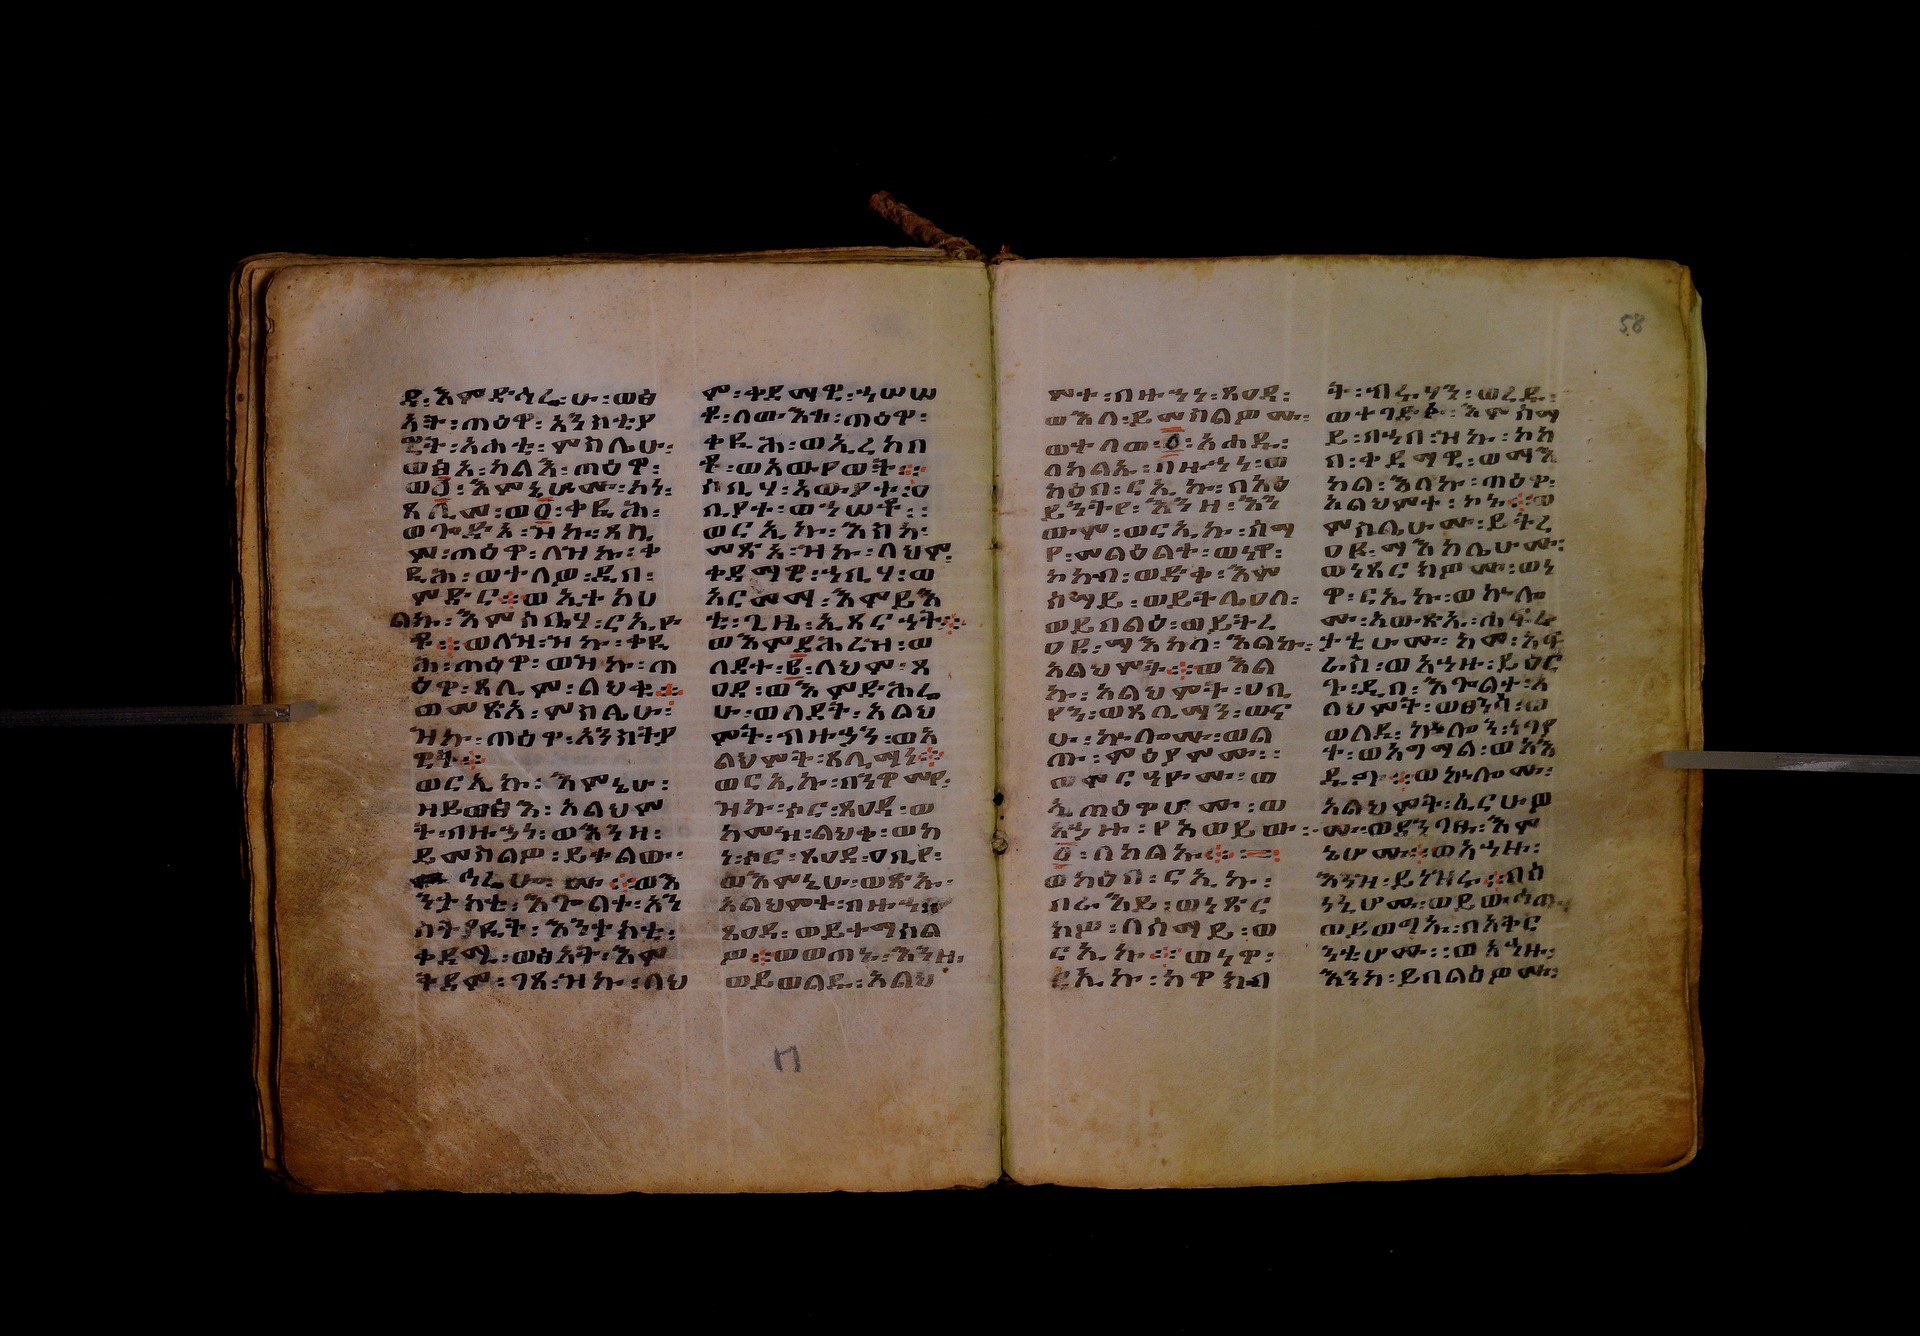 ዲ፡እምድኅሬሁ፡ወፅ
አት፡ጠዕዋ፡አንስቲያ
ዊት፡አሐቲ፡ምስሌሁ፡
ወፅአ፡ካልእ፡ጠዕዋ፡
ወ፩፡እምኔሆሙ፡ኮነ፡
ጸሊመ፡ወ፩፡ቀይሐ፡
ወጐድአ፡ዝኩ፡ጸሊ
ም፡ጠዕዋ፡ለዝኩ፡ቀ
ይሕ፡ወተለዎ፡ዲበ፡
ምድር፨ወኢተክህ
ልኩ፡እምሰቤሃ፡ርኢዮ
ቶ፨ወለዝ፡ዝኩ፡ቀይ
ሕ፡ጠዕዋ፡ወዝኩ፡ጠ
ዕዋ፡ጸሊም፡ልህቀ፨
ወመጽአ፡ምስሌሁ፡
ዝኩ፡ጠዕዋ፡አንስትያ
ዊት፨
ወርኢኩ፡እምኔሁ፡
ዘይወፅእ፡አልህም
ት፡ብዙኀነ፡ወእንዘ፡
ይመስልዎ፡ይተልው፡
ኀሬሁ፡ሙ፨ወእ
ንታክቲ፡እጐልት፡አን
ስትያዪት፡እንታክቲ፡
ቀዳሚ፡ወፅአት፡እም
ቅድም፡ገጸ፡ዝኩ፡ላህ
ም፡ቀደማዊ፡ኀሠሠ
ቶ፡ለውእቱ፡ጠዕዋ፡
ቀይሕ፡ወኢረከበ
ቶ፡ወአውየወት፨
ሰቢሃ፡አውያተ፡ዐ
ቢያተ፡ወኀሠቶ፡
ወርኢኩ፡እስከ፡
መጽአ፡ዝኩ፡ላህም
ቀዳማዊ፡ኀቢሃ፡ወ
አርመማ፡እምይእ
ቲ፡ጊዜ፡ኢጸርኀት፨
ወእምድኅረዝ፡ወ
ለደት፡፪፡ላህም፡ጸ
ዐዳ፡ወእምድኅሬ
ሁ፡ወለደት፡አልህ
ምት፡ብዙኃን፡ወአ
ልህምት፡ጸሊማነ፨
ወርኢኩ፡በንዋምየ፡
ዝኩ፡ሶር፡ጸዐዳ፡ወ
ከመዝ፡ልህቀ፡ወኮ
ነ፡ሶር፡ጸዐዳ፡ዐቢየ፡
ወእምኔሁ፡ወጽኡ፡
አልህምት፡ብዙኀን
ጸዐዳ፡ወይተማሰል
ዎ፨ወወጠኑ፡እንዘ፡
ይወልዱ፡አልህ
58
ምተ፡ብዙኀነ፡ጸዐዳ፡
ወእለ፡ይመስልዎሙ፡
ወተለወ፡፩፡አሐዱ፡
ለካልኡ፡ብዙኀነ፡ወ
ካዕበ፡ርኢኩ፡በአዕ
ይንትየ፡እንዘ፡እን
ውም፡ወርኢኩ፡ሰማ
የ፡መልዕልተ፡ወነዋ፡
ኮከብ፡ወድቀ፡እም
ሰማይ፡ወይትሌዐል፡
ወይበልዕ፡ወይትረ
ዐይ፡ማእከለ፡እልኩ፡
አልህምት፨ወእል
ኩ፡አልህምት፡ዐቢ
ያን፡ወጸሊማን፡ወና
ሁ፡ኩሎሙ፡ወል
ጡ፡ምዕያሞሙ፡
ወምርዓዮሙ፡ወ
ኢጠዕዋሆሙ፡ወ
አኀዙ፡የአወይው፡
፩፡ለካልኡ፨
ወካዕበ፡ርኢኩ፡
በራእይ፡ወነጽር
ክዎ፡ለሰማይ፡ወ
ርኢኩ፨ወነዋ፡
ርኢኩ፡ከዋክብ
ት፡ብዙኃን፡ወረዱ፡
ወተገድፉ፡እምሰማ
ይ፡በኀበ፡ዝኩ፡ኮከ
ብ፡ቀዳማዊ፡ወማእ
ከል፡እልኩ፡ጠዕዋ፡
አልህምተ፡ኮኑ፨ወ
ምስሌሁሙ፡ይትረ
ዐይ፡ማእከሌሁሙ፡
ወነጸርክዎሙ፡ወነ
ዋ፡ርኢኩ፡ወኩሎ
ሙ፡አውጽኡ፡ሐፍረ
ታቲሁሙ፡ከመ፡አፍ
ራስ፡ወአኀዙ፡ይዕር
ጉ፡ዲበ፡እጐልተ፡አ
ልህምት፡ወፀንሳ፡ወ
ወልዳ፡ኩሎን፡ነገየ
ተ፡ወአግማል፡ወአእ
ዱገ፨ወኩሎሙ፡
አልህምት፡ፈርሁዎ
ሙ፡ወደንገፁ፡እም
ኔሆሙ፨ወአኀዙ፡
እንዘ፡ይነዝሩ፨በዕ
ነኒሆሙ፡ወይውኅጡ፡
ወይወግኡ፡በአቅር
ንቲሆሙ፡ወአኀዙ፡
እንከ፡ይበልዕዎሙ፡